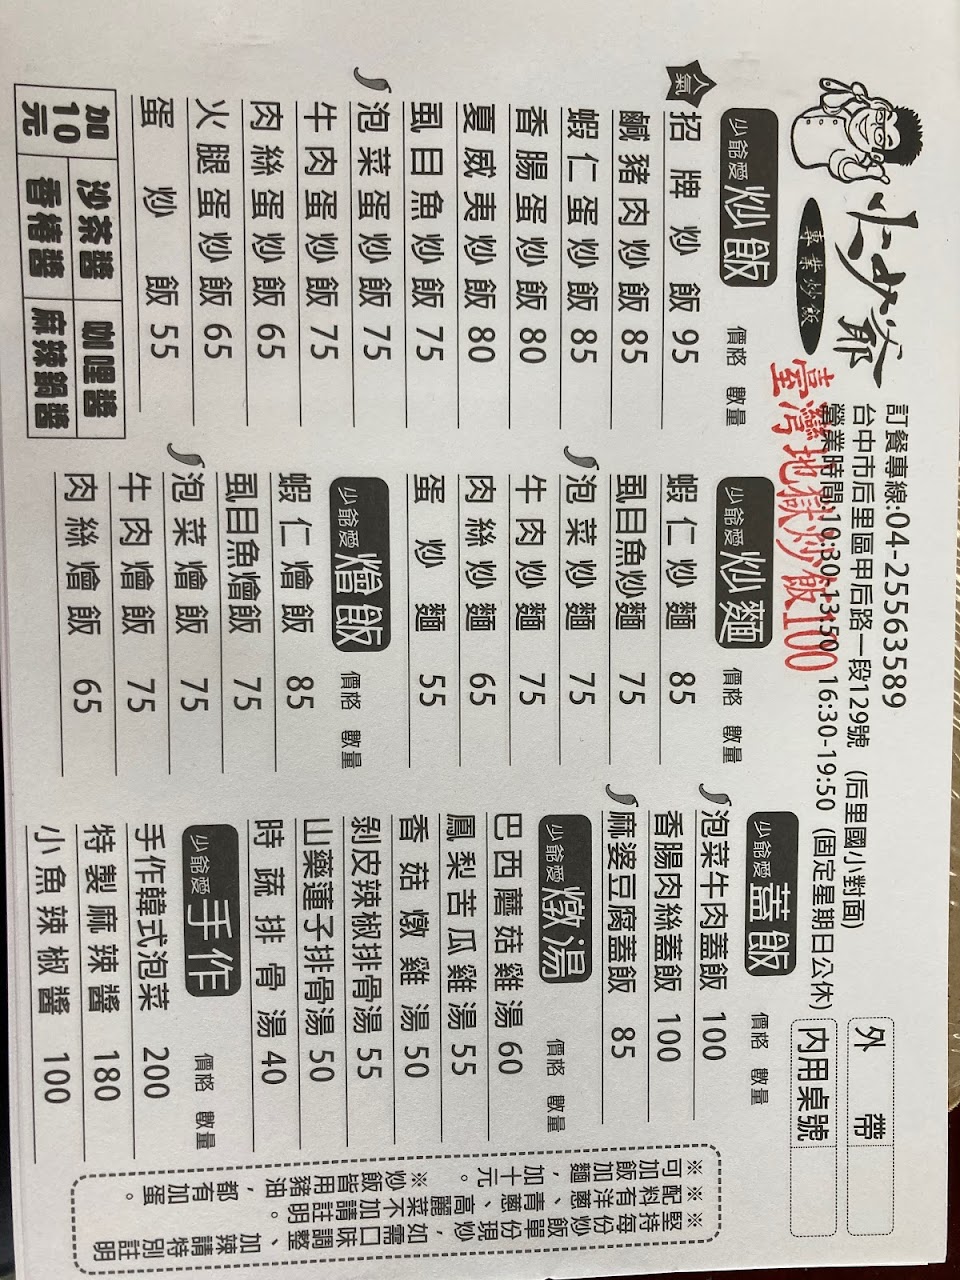 火少爺
專業炒飯
訂餐專線:04-25563589
台中市后里區甲后路一段129號 (后里國小對面)
營業時間:10:30-13:50 16:30-19:50 (固定星期日公休)
臺灣地獄炒飯100
外帶
內用桌號
少爺愛炒飯 價格 數量
人氣 招牌炒飯 95
鹹豬肉炒飯 85
蝦仁蛋炒飯 85
香腸蛋炒飯 80
夏威夷炒飯 80
虱目魚炒飯 75
泡菜蛋炒飯 75
牛肉蛋炒飯 75
肉絲蛋炒飯 65
火腿蛋炒飯 65
蛋炒飯 55
加10元
沙茶醬 咖哩醬
香椿醬 麻辣鍋醬
少爺愛炒麵 價格 數量
蝦仁炒麵 85
虱目魚炒麵 75
泡菜炒麵 75
牛肉炒麵 75
肉絲炒麵 65
蛋炒麵 55
少爺愛燴飯 價格 數量
蝦仁燴飯 85
虱目魚燴飯 75
泡菜燴飯 75
牛肉燴飯 75
肉絲燴飯 65
少爺愛蓋飯 價格 數量
泡菜牛肉蓋飯 100
香腸肉絲蓋飯 100
麻婆豆腐蓋飯 85
少爺愛燉湯 價格 數量
巴西蘑菇雞湯 60
鳳梨苦瓜雞湯 55
香菇燉雞湯 50
剝皮辣椒排骨湯 55
山藥蓮子排骨湯 50
時蔬排骨湯 40
少爺愛手作 價格 數量
手作韓式泡菜 200
特製麻辣醬 180
小魚辣椒醬 100
※堅持每份炒飯單份現炒,如需口味調整、加辣請特別註明
※配料有洋蔥、青蔥、高麗菜不加請註明。
可加飯加麵,加十元。
※炒飯皆用豬油,都有加蛋。